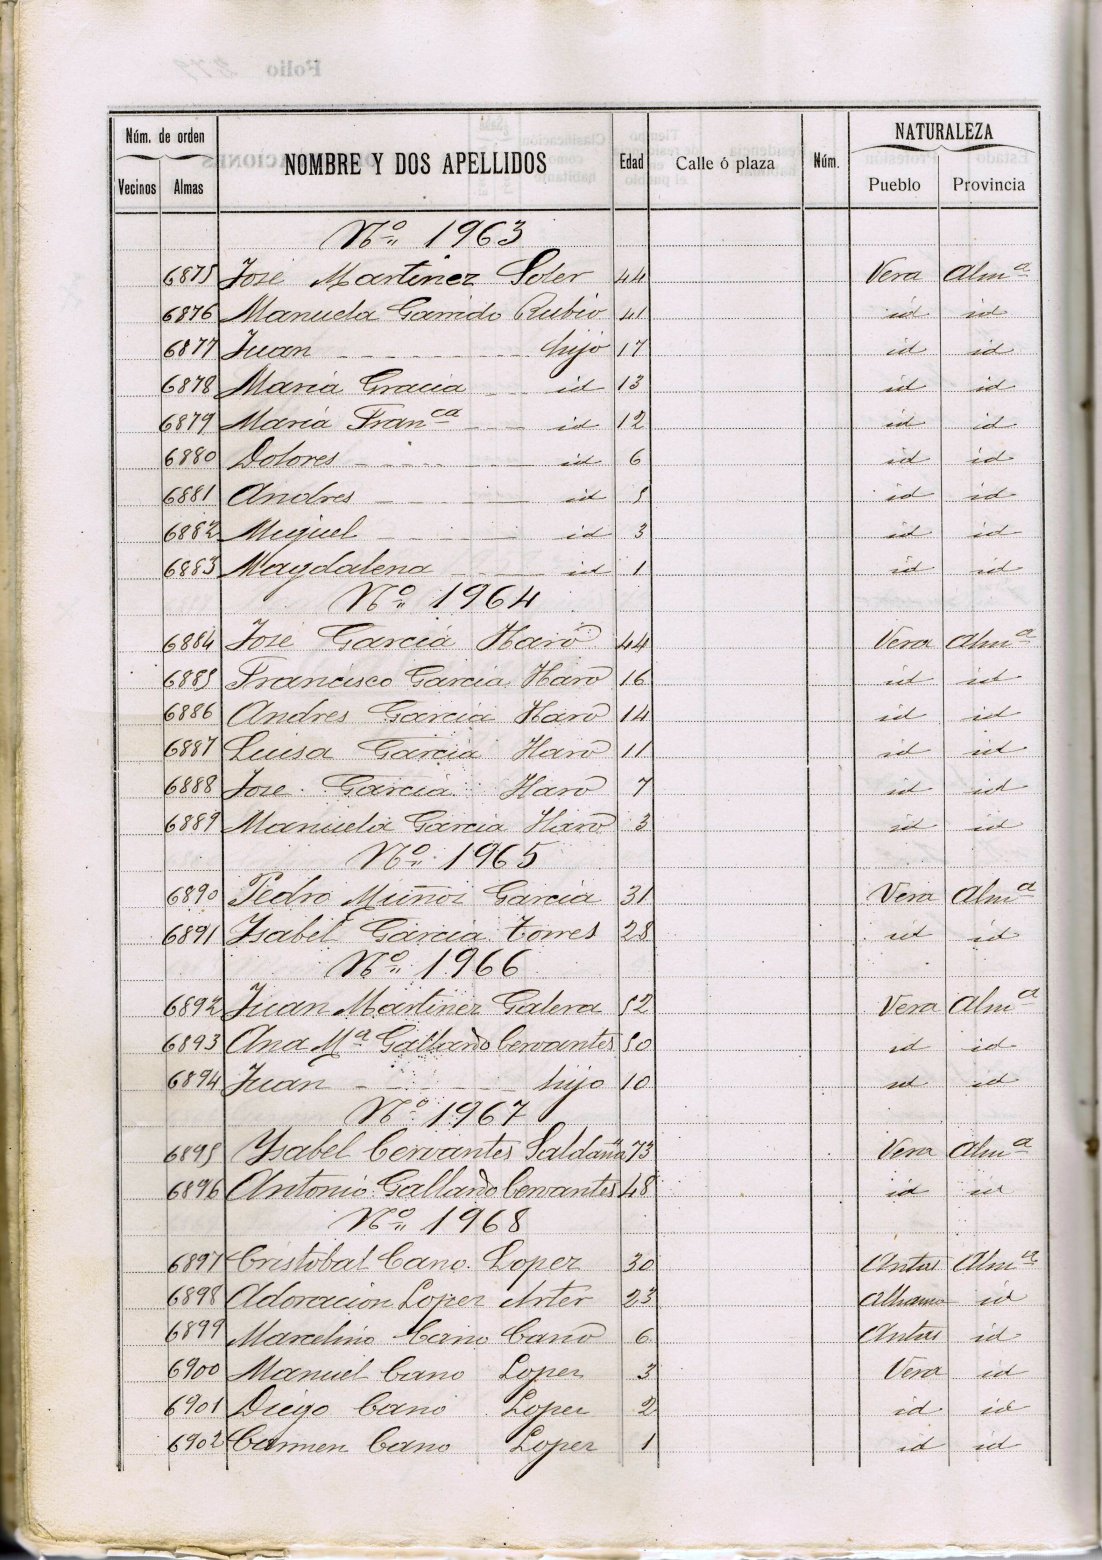 Folio 379
Núm. de orden NOMBRE Y DOS APELLIDOS Edad Calle ó plaza Núm. NATURALEZA
Vecinos Almas Pueblo Provincia
Nº 1963
6875 Jose Martinez Soler 44 Vera Almª
6876 Manuela Garrido Rubio 41 id id
6877 Juan hijo 17 id id
6878 Maria Gracia id 13 id id
6879 Maria Franca id 12 id id
6880 Dolores id 6 id id
6881 Andres id 5 id id
6882 Miguel id 3 id id
6883 Magdalena id 1 id id
Nº 1964
6884 Jose Garcia Haro 44 Vera Almª
6885 Francisco Garcia Haro 16 id id
6886 Andres Garcia Haro 14 id id
6887 Luisa Garcia Haro 11 id id
6888 Jose Garcia Haro 7 id id
6889 Manuela Garcia Haro 3 id id
Nº 1965
6890 Pedro Muñoz Garcia 31 Vera Almª
6891 Ysabel Garcia Torres 28 id id
Nº 1966
6892 Juan Martinez Galera 52 Vera Almª
6893 Ana Mª Gallardo Cervantes 50 id id
6894 Juan hijo 10 id id
Nº 1967
6895 Ysabel Cervantes Saldaña 73 Vera Almª
6896 Antonio Gallardo Cervantes 48 id id
Nº 1968
6897 Cristobal Cano Lopez 30 Antas Almª
6898 Adoracion Lopez Arter 23 Alhama id
6899 Marcelino Cano Cano 6 Antas id
6900 Manuel Cano Lopez 3 Vera id
6901 Diego Cano Lopez 2 id id
6902 Carmen Cano Lopez 1 id id